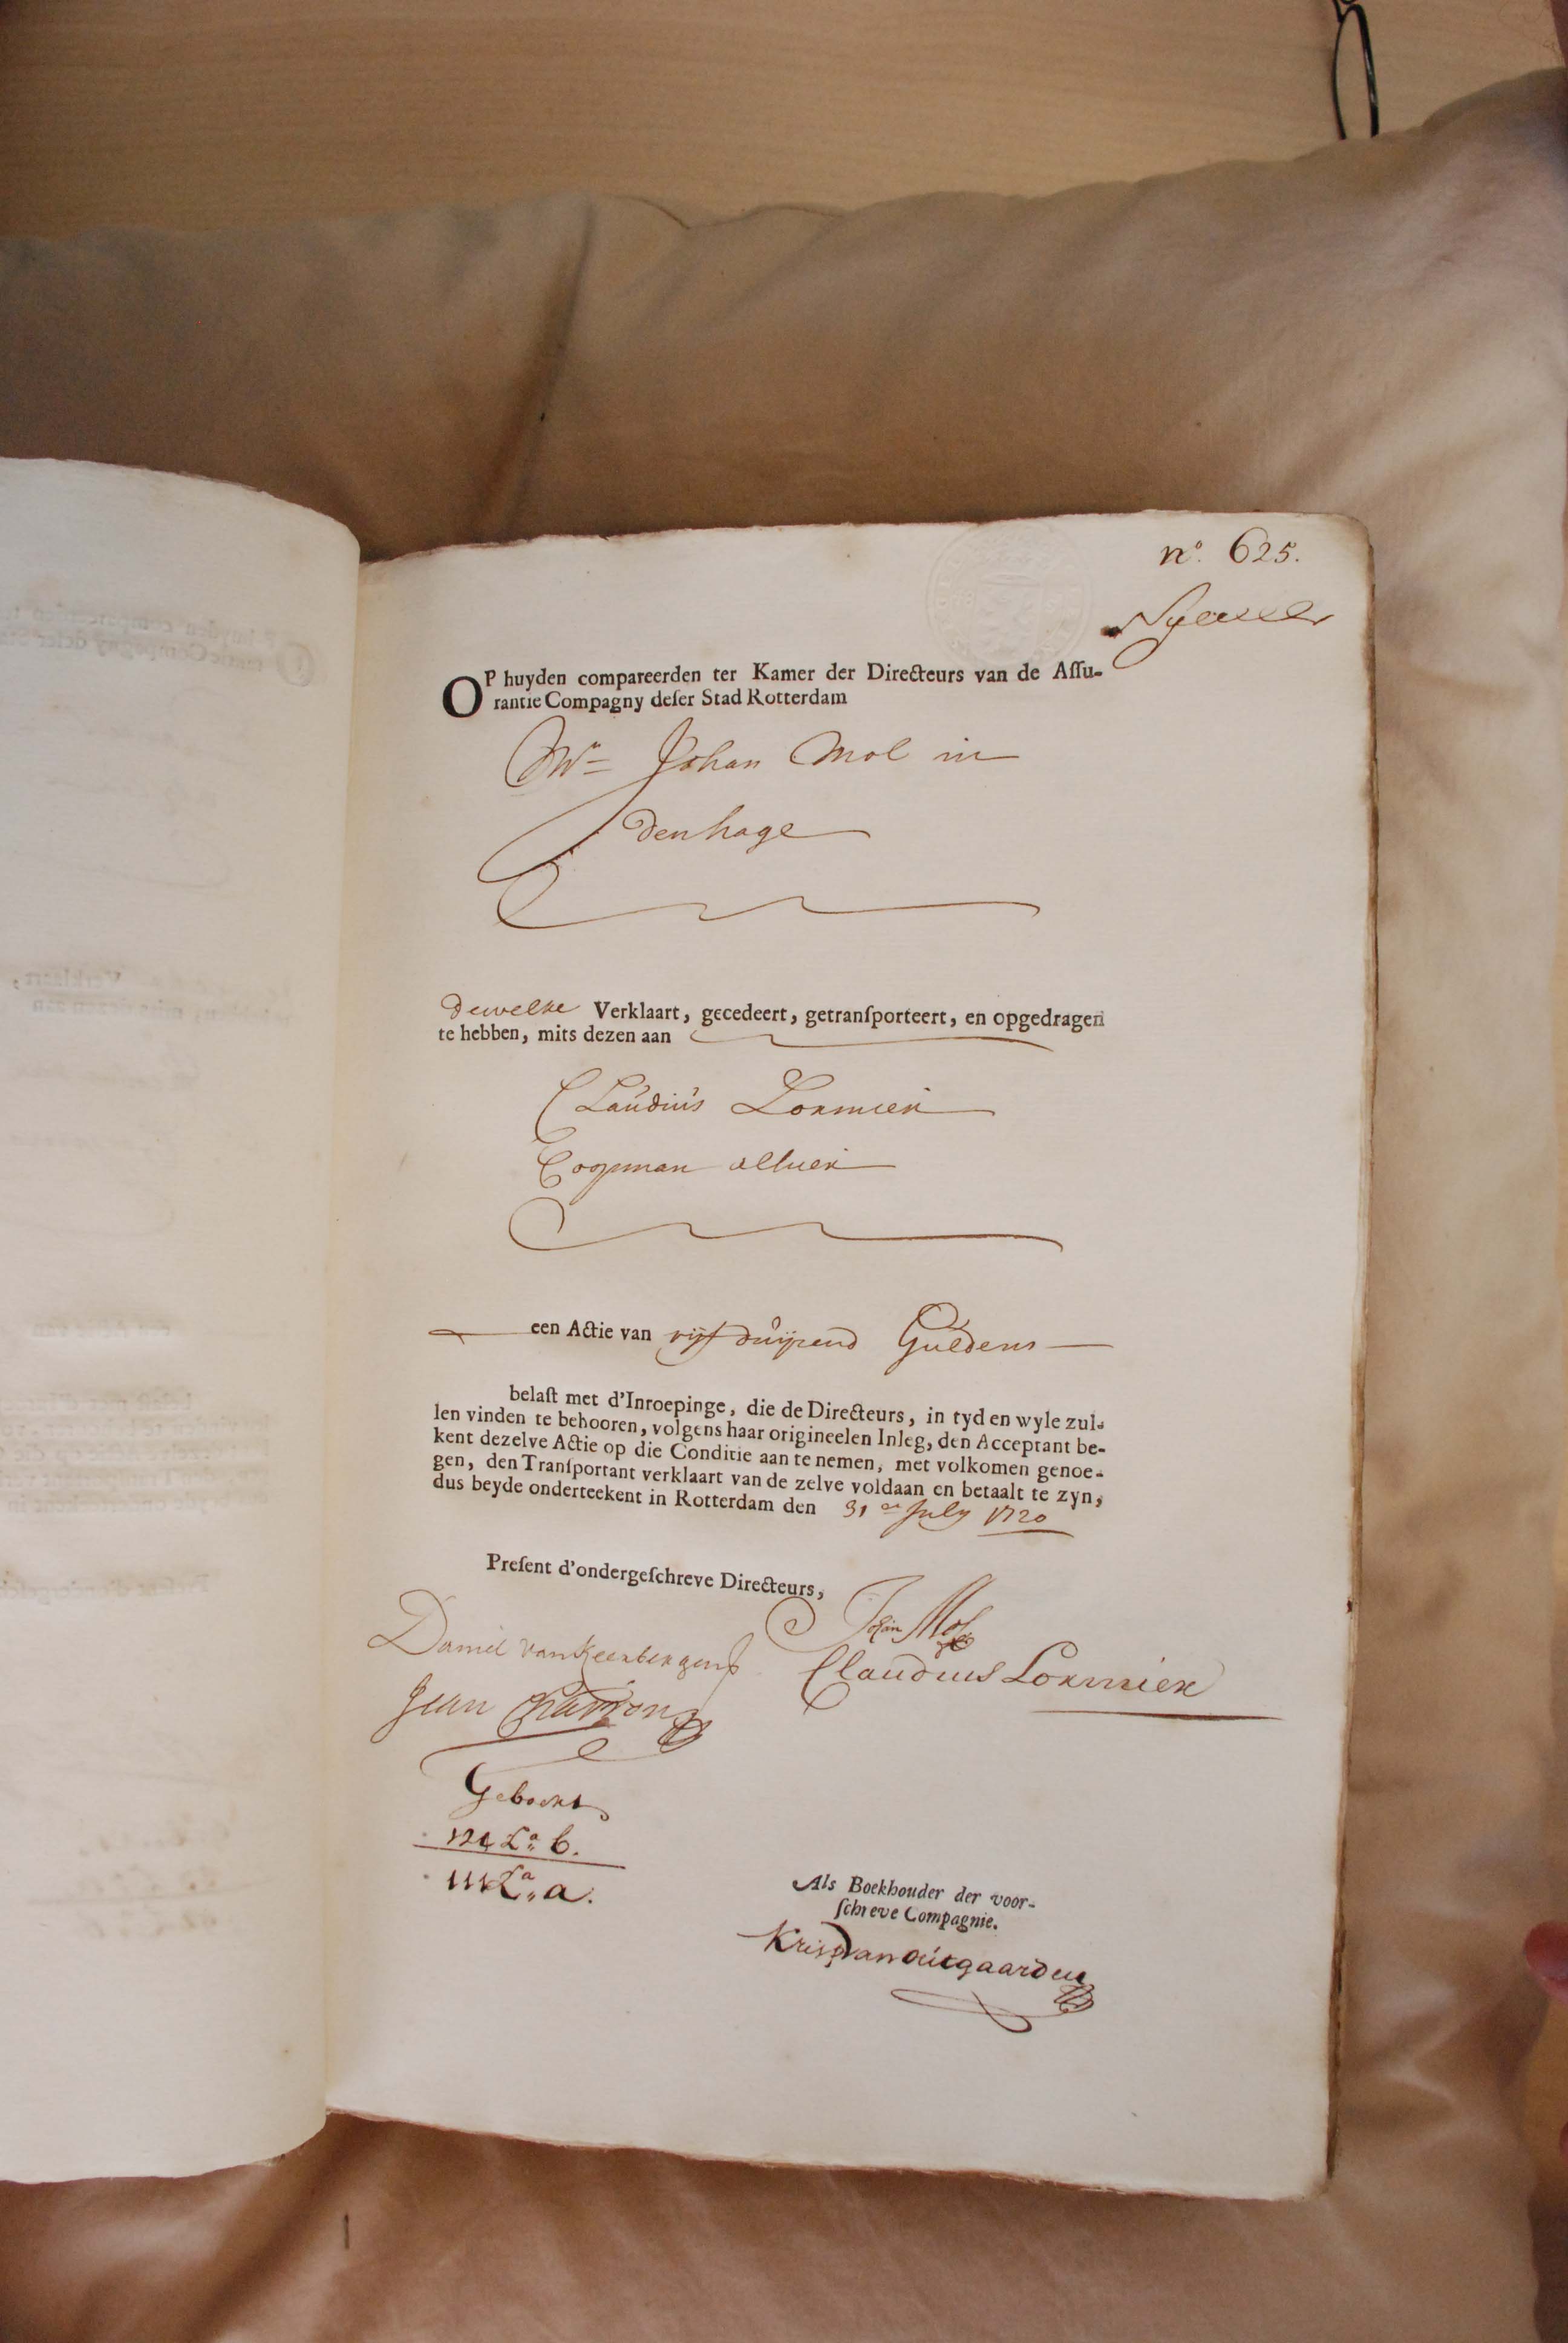 nº. 625.
OP huyden compareerden ter Kamer der Directeurs van de Aſſu-
rantie Compagny deſer Stad Rotterdam
Mr= Johan Mol in
denhage
dewelke Verklaart, gecedeert, getranſporteert, en opgedragen
te hebben, mits dezen aan
Claudius Lormier
Coopman alhier
een Actie van vijf duijsend Guldens
belaſt met d'Inroepinge, die de Directeurs, in tyd en wyle zul-
len vinden te behooren, volgens haar origineelen Inleg, den Acceptant be-
kent dezelve Actie op die Conditie aan te nemen, met volkomen genoe-
gen, den Tranſportant verklaart van de zelve voldaan en betaalt te zyn,
dus beyde onderteekent in Rotterdam den 31en July 1720
Preſent d'ondergeſchreve Directeurs,
Johan Mol
Daniel van Keerbergen
Claudius Lormier
Jean
Geboekt
124 La b.
111 La a.
Als Boekhouder der voor-
ſchreve Compagnie.
Kris van Outgaarden